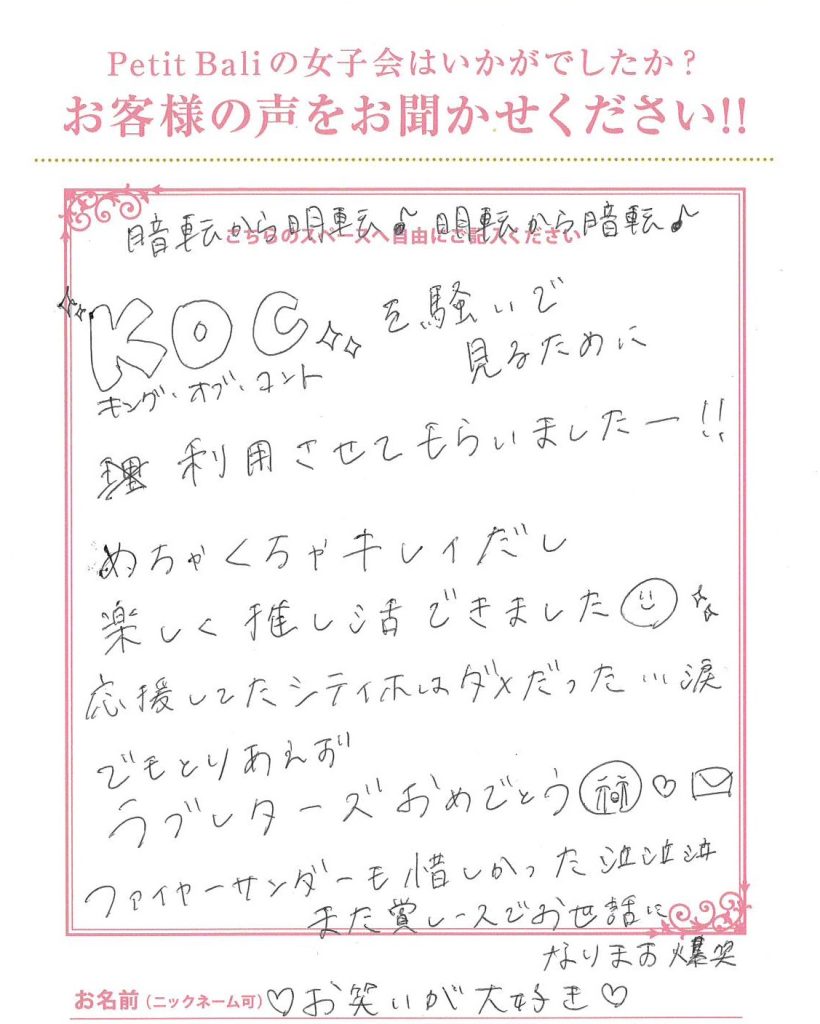 Petit Baliの女子会はいかがでしたか？
お客様の声をお聞かせください!!
暗転から明転♪ 明転から暗転♪
こちらのスペースへ自由にご記入ください
KOC を騒いで
見るために
キング・オブ・コント
利用させてもらいましたー!!
めちゃくちゃキレイだし
楽しく推し活できました
応援してたシティホはダメだった…涙
でもとりあえず
ラブレターズおめでとう 祝 ♡
ファイヤーサンダーも惜しかった泣泣泣
また賞レースでお世話に
なります爆笑
お名前（ニックネーム可）♡お笑いが大好き♡